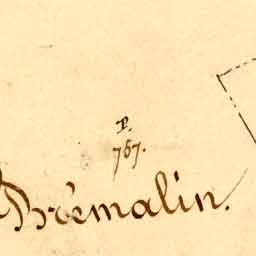 P.
767.
Brémalin.